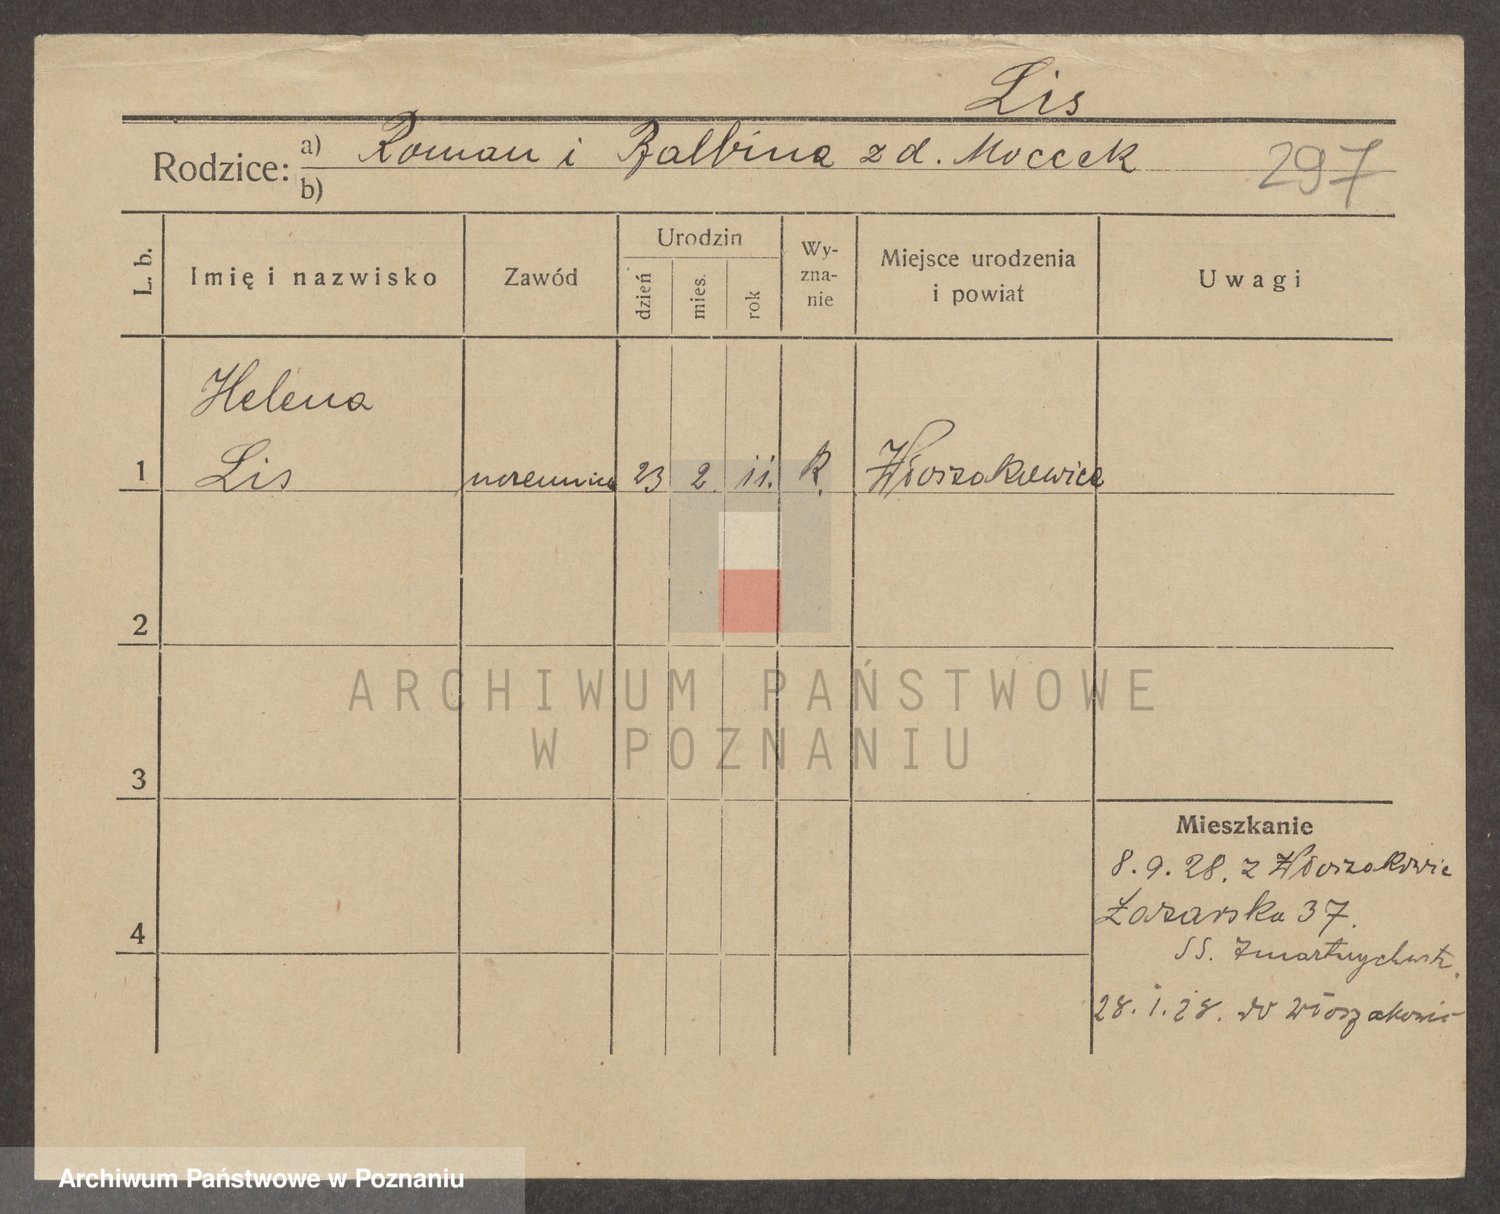 Lis
Rodzice: a) Roman i Balbina z d. Moccek
b)
297
L. b.
Imię i nazwisko
Zawód
Urodzin
dzień
mies.
rok
Wy-
zna-
nie
Miejsce urodzenia
i powiat
Uwagi
Helena
1 Lis uczennica 23 2 11. R. Włoszakowice
2
3
4
Mieszkanie
8.9.28. z Włoszakowic
Łazarska 37.
SS. Zmartwychwst.
28. 1. 28. do Włoszakowic
ARCHIWUM PAŃSTWOWE
W POZNANIU
Archiwum Państwowe w Poznaniu